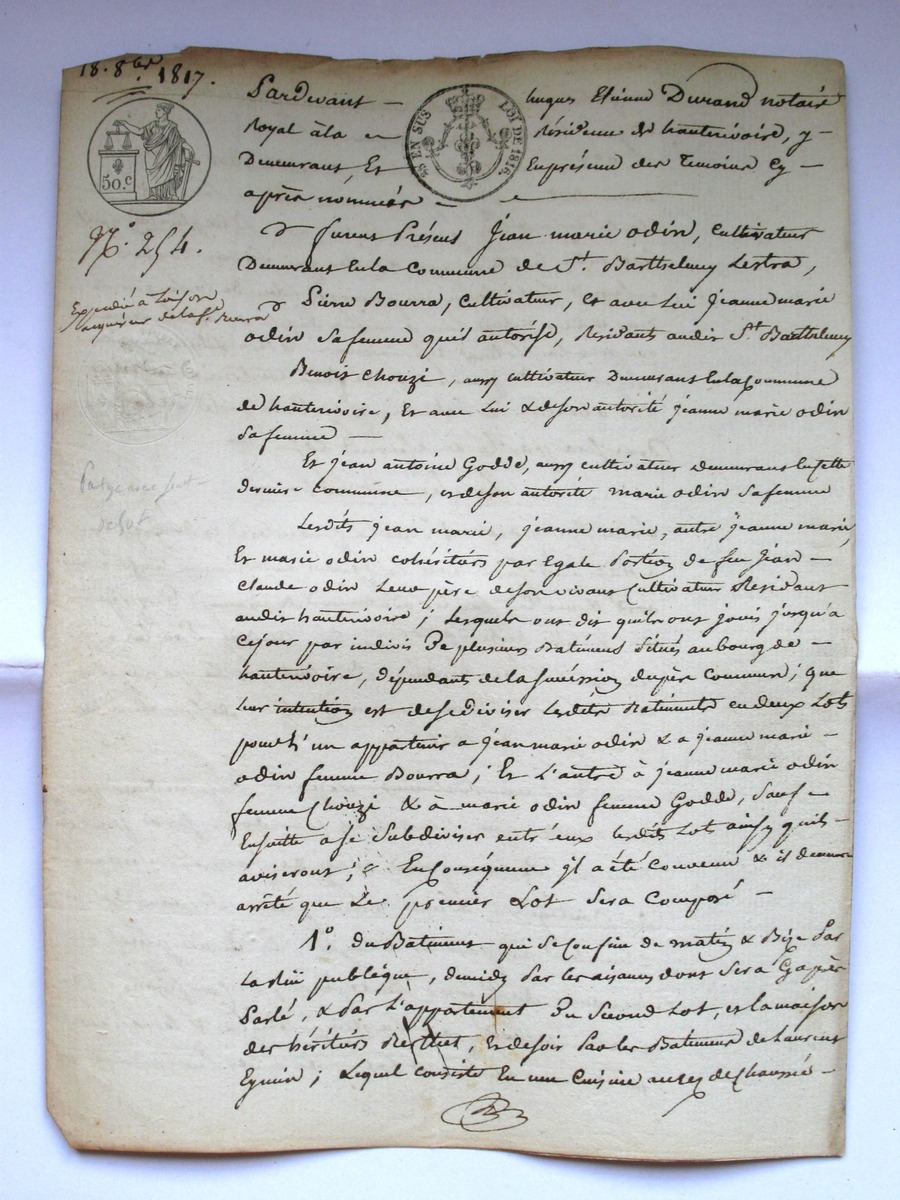 18. 8bre 1817.
50.c
25 EN SUS LOI DE 1816.
N°. 254.
Expédié à
acquéreur de la fe. Bourra
Pardevant — hugues Etienne Durand notaire
Royal à la — Résidence de hauterivoire, y
Demeurant, Et En présence des Temoins Cy —
après nommés —
furent Présens Jean marie odin, Cultivateur
Demeurant En la Commune de St. Barthelemy Lestra,
Pierre Bourra, Cultivateur, Et avec Lui Jeanne marie
odin Sa femme qu'il autorise, Résidants audit St. Barthelemy
Benoit Chouzi, aussy Cultivateur Demeurant En la Commune
de hauterivoire, Et avec Lui & de son autorité jeanne marie odin
Sa femme —
Et jean antoine Godde, aussy cultivateur demeurant En cette
derniere commune, et de son autorité marie odin Sa femme
Lesdits jean marie, jeanne marie, autre jeanne marie,
Et marie odin cohéritiers par Egale Portion de feu Jean —
Claude odin Leur père de son vivant Cultivateur Résidant
audit hauterivoire; Lesquels ont dit qu'ils ont joui jusqu'à
Ce jour par indivis De plusieurs Batimens Situés au bourg de —
hauterivoire, dépendants de la Succession du père Commun; que
Leur intention est de se diviser Lesdits Batiments en deux Lots
pour L'un appartenir a jean marie odin & a jeanne marie —
odin femme Bourra; Et L'autre à jeanne marie odin
femme Chouzi & à marie odin femme Godde, Sauf —
Ensuitte a se Subdiviser entr'eux lesdits Lots ainsy qu'ils —
aviseront; En Conséquence il a été Convenu & il demeure
arrêté que Le premier Lot Sera Composé —
1°. du Batiment qui Se Confine de matin & Bize Par
La Rüe publique, de midy Par les aisances dont Sera Cy après
Parlé, & Par L'appartement Du Second Lot, et la maison
des héritiers Berthet, Et de soir Par les Batimens de Laurent
Eymin; Lequel consiste En une Cuisine au rez de Chaussée —